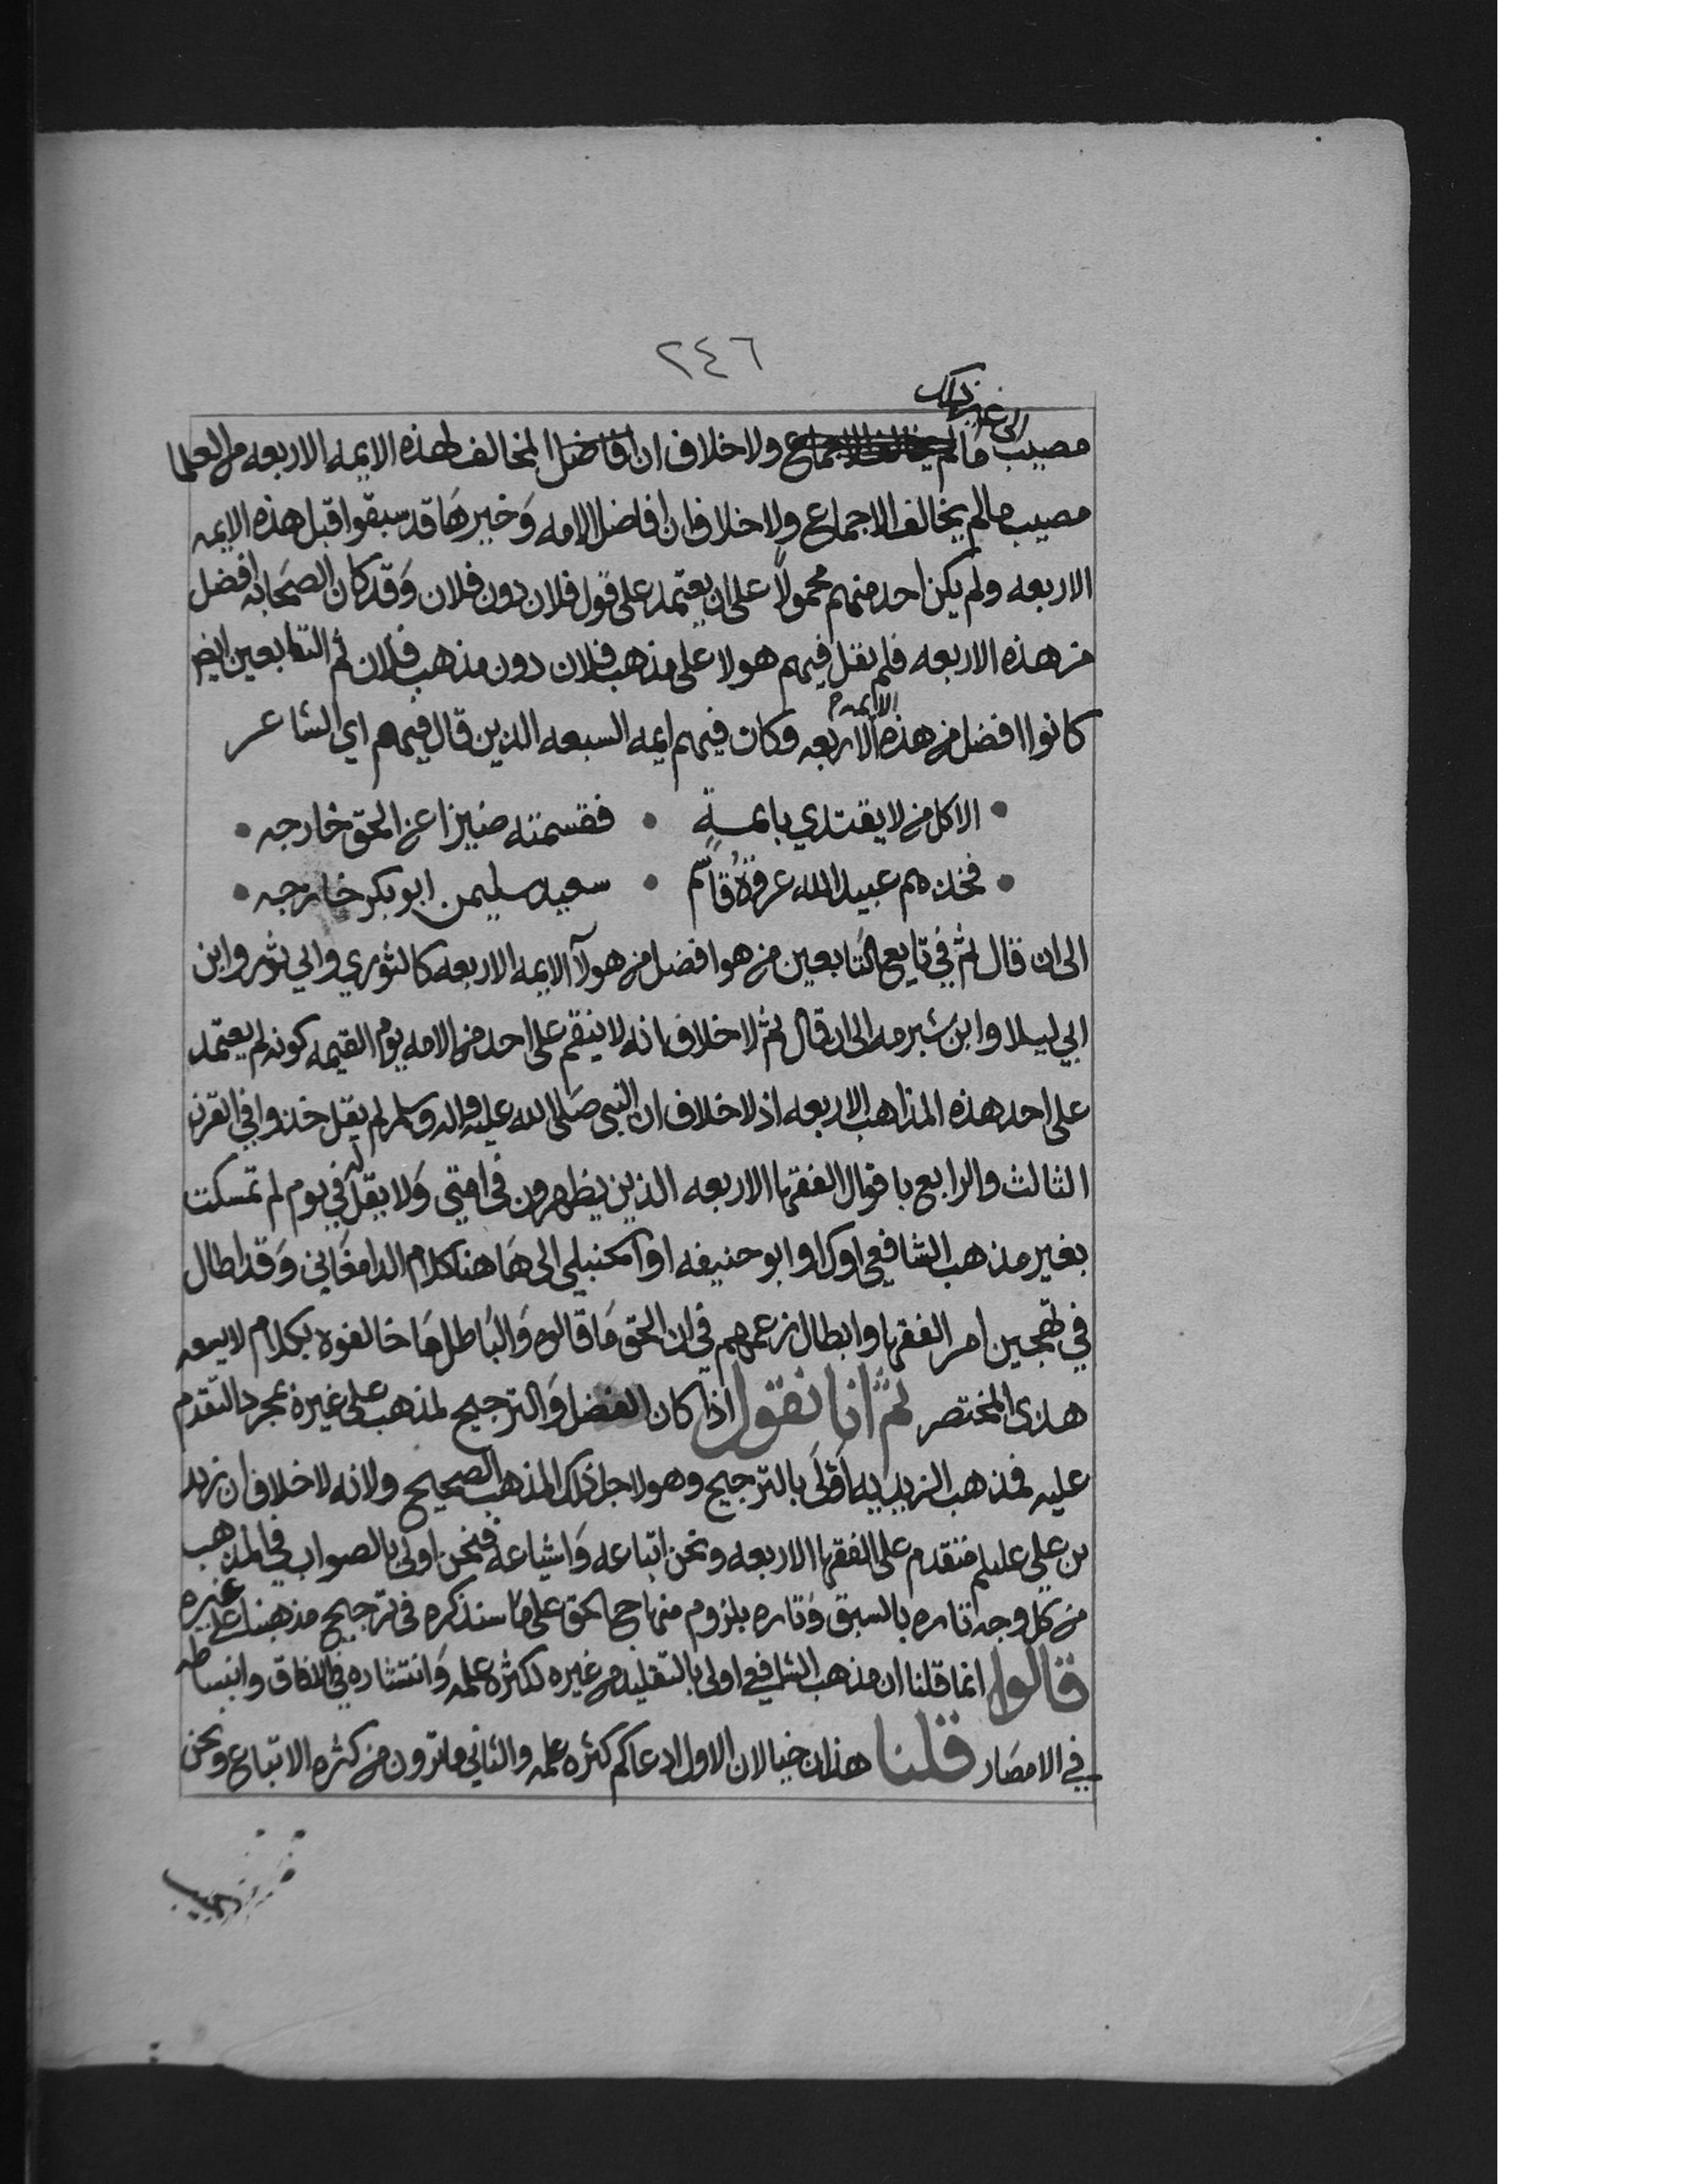 ٢٤٦
الى غير ذلك
مصيب مالم يخالف الاجماع ولا خلاف ان افاضل المخالف لهذه الايمه الاربعه من العلما
مصيب مالم يخالف الاجماع ولا خلاف ان افاضل الامه وَخيرهَا قد سبقوا قبل هذه الايمه
الاربعه ولم يكن احد منهم محمولًا على ان يعتمد على قول فلان دون فلان وَقد كان الصحَابه افضل
من هذه الاربعه فلم يقل فيهم هولا على مذهب فلان دون مذهب فلان ثم التابعين ايض
كانوا افضل من هذه الايمه الاربعه وكان فيهم ايمه السبعه الذين قال فيهم اي الشاعر
• الا كل من لا يقتدي بايمــةٍ • فقسمته ضيزا عن الحق خارجه •
• فخذهم عبيد الله عروةُ قاسم • سعيد سليمن ابو بكر خارجه •
الى ان قال ثم في تابع التابعين من هو افضل من هولآ الايمه الاربعه كالثوري وابي ثور وابن
ابي ليلا وابن شبرمه الى ان قال ثم لا خلاف انه لا ينقم على احد من الامه يوم القيمه كونه لم يعتمد
على احد هذه المذاهب الاربعه اذ لا خلاف ان النبي صَلى الله عليه واله وسلم لم يقل خذوا في القرن
الثالث والرابع باقوال الفقها الاربعه الذين يظهرون في امتي وَلا يقل له في يوم لم تمسكت
بغير مذهب الشافعي او ك او ابو حنيفه او الحنبلي الى هَا هنا كلام الدامغَاني وَقد اطال
في تهجين امر الفقها وابطال زعمهم في ان الحق مَا قالوه وَالبَاطل مَا خالفوه بكلام لا يسعه
هذى المختصر ثم انا نقول اذا كان الفضل وَالترجيح لمذهب على غيره بمجرد التقدم
عليه فمذهب الزيديه اَوْلَى بالترجيح وهو لاجل ذلك المذهب الصحيح ولانه لا خلاف ان زيد
بن علي عليلم متقدم على الفقها الاربعه ونحن اتباعه وَاشياعه فنحن اولى بالصواب في المذهب
من كل وجه تاره بالسبق وَتاره بلزوم منهاج الحق على ما سنذكره في ترجيح مذهبنا على غيره
قالوا انما قلنا ان مذهب الشافعي اولى بالتقليد من غيره لكثرة علمه وَانتشاره في الافاق وانبساطه
في الامصَار قلنا هذان خيالان الاول ادعاكم كثره علمه والثاني ما ترون من كثره الاتباع ونحن